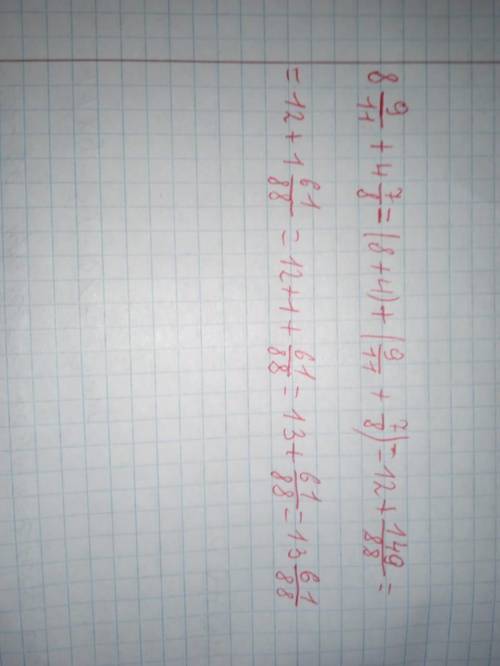 8 9/11 + 4 7/8 = (8+4) + (9/11 + 7/8) = 12 + 149/88 =
= 12 + 1 61/88 = 12 + 1 + 61/88 = 13 + 61/88 = 13 61/88